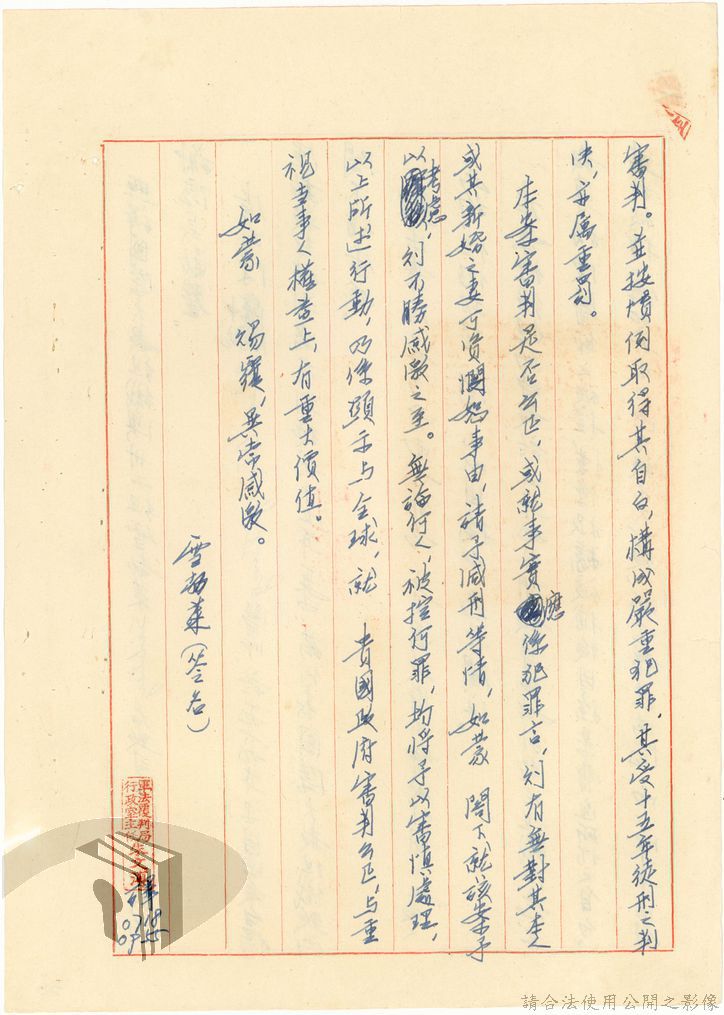 審判。並按慣例取得其自白，構成嚴重犯罪，其受十五年徒刑之判
決，亦屬重罰。
本案審判是否公正，或就事實應係犯罪言，則有無對其本人
或其新婚之妻可資憫恕事由，請予減刑等情，如蒙　閣下就該案予
以考慮，則不勝感激之至。無論何人，被控何罪，均將予以審慎處理，
以上所述行動，乃係顯示與全球，就　貴國政府審判公正，與重
視當事人權益上，有重大價值。
如蒙　賜覆，無常感激。
雪勃萊（簽名）
軍法覆判局
行政室主任朱文
0718
0955
請合法使用公開之影像